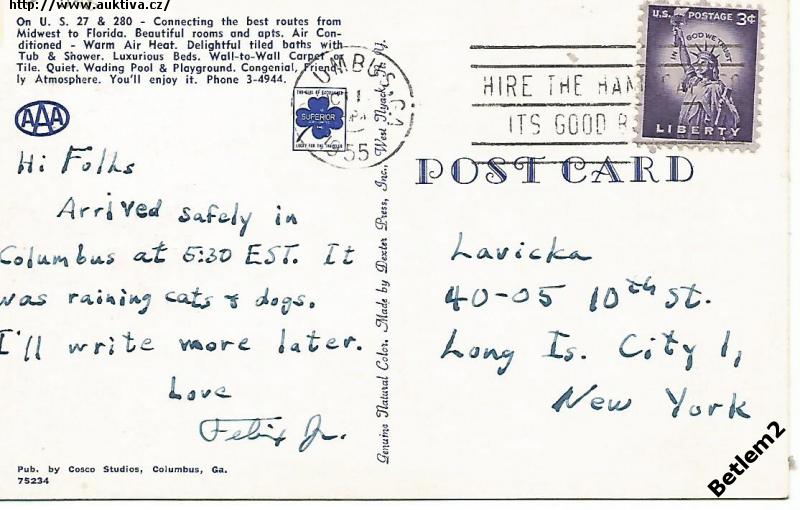 http://www.auktiva.cz/
On U. S. 27 & 280 - Connecting the best routes from
Midwest to Florida. Beautiful rooms and apts. Air Con-
ditioned - Warm Air Heat. Delightful tiled baths with
Tub & Shower. Luxurious Beds. Wall-to-Wall Carpet or
Tile. Quiet. Wading Pool & Playground. Congenial, Friend-
ly Atmosphere. You'll enjoy it. Phone 3-4944.
AAA
SUPERIOR
UMBUS, GA
1955
HIRE THE HAN
ITS GOOD B
U.S. POSTAGE 3¢
IN GOD WE TRUST
LIBERTY
POST CARD
Hi Folks
Arrived safely in
Columbus at 5:30 EST. It
was raining cats & dogs.
I'll write more later.
Love
Felix Jr.
Genuine Natural Color. Made by Dexter Press, Inc., West Nyack, N. Y.
Lavicka
40-05 10th St.
Long Is. City 1,
New York
Pub. by Cosco Studios, Columbus, Ga.
75234
Betlem2